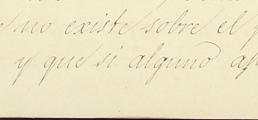 no existe sobre el
y que si alguno ap